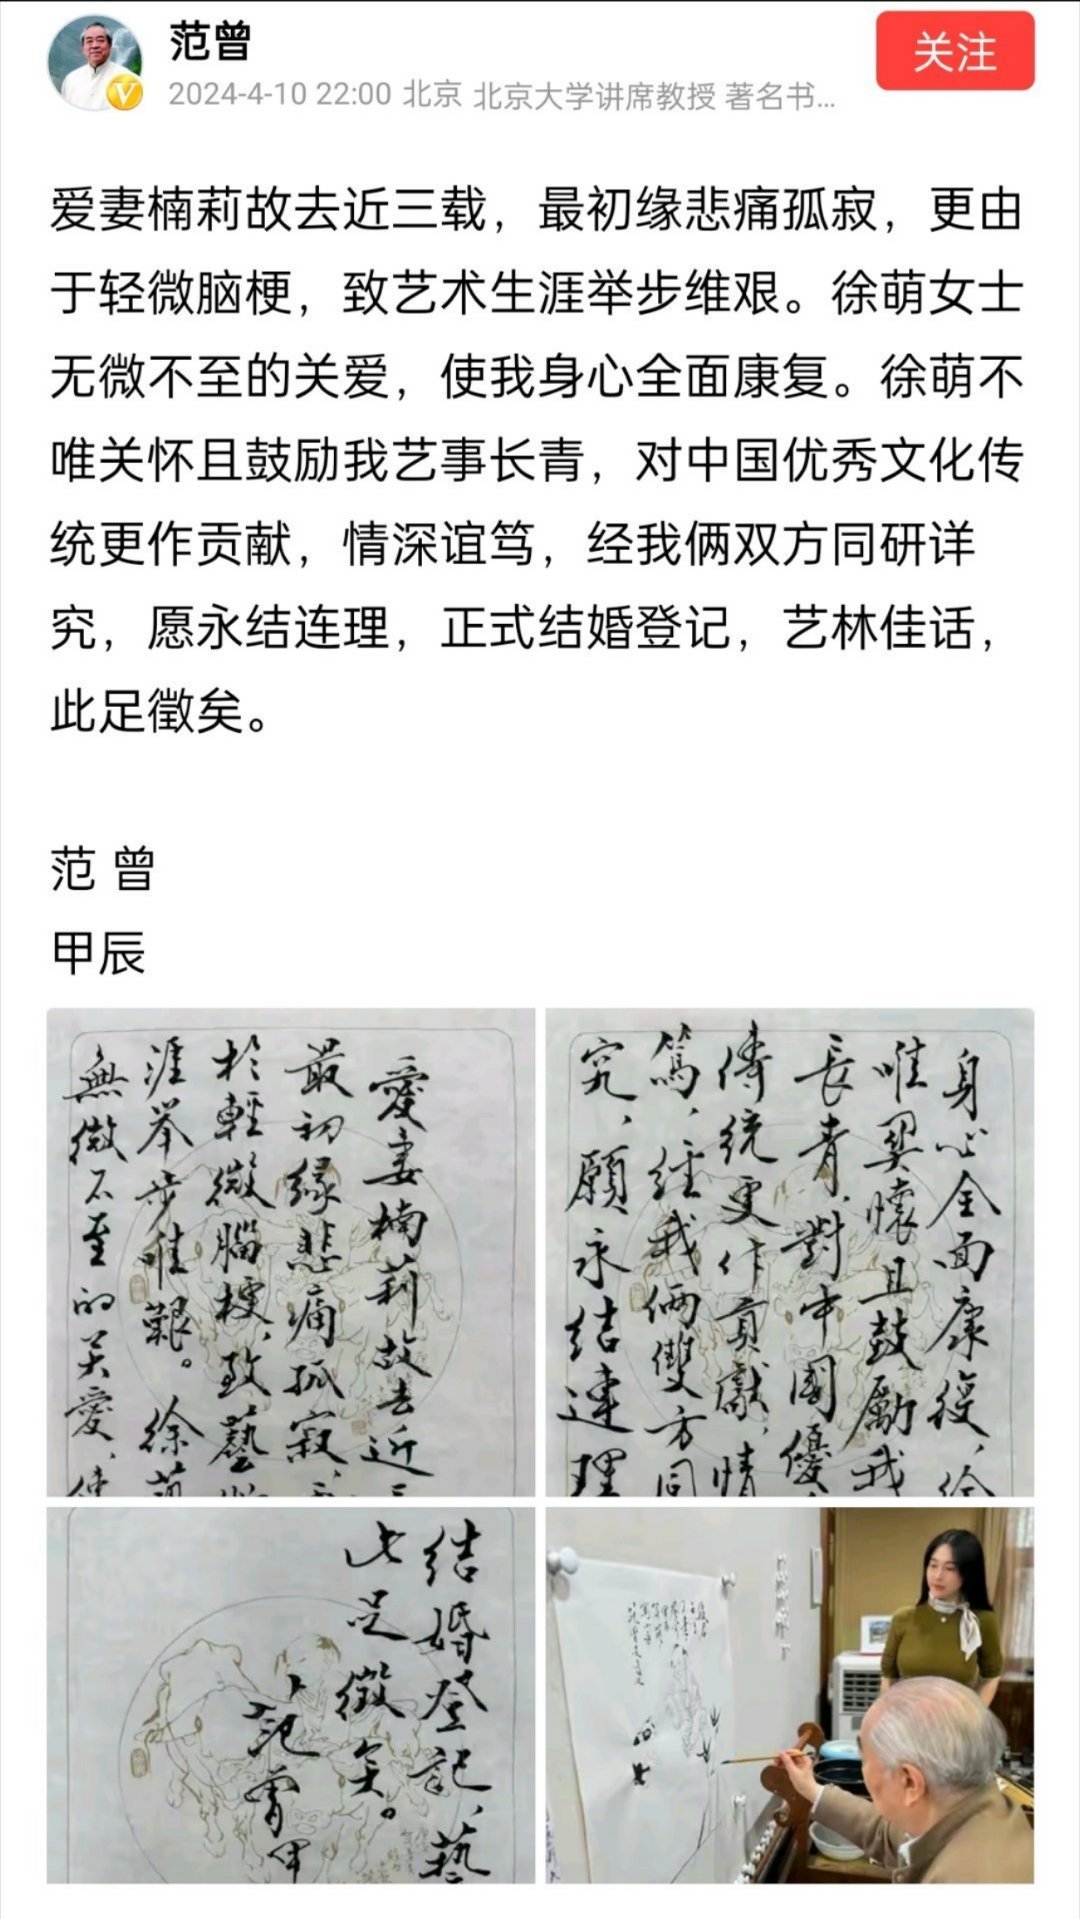 范曾
关注
2024-4-10 22:00 北京 北京大学讲席教授 著名书...
爱妻楠莉故去近三载，最初缘悲痛孤寂，更由
于轻微脑梗，致艺术生涯举步维艰。徐萌女士
无微不至的关爱，使我身心全面康复。徐萌不
唯关怀且鼓励我艺事长青，对中国优秀文化传
统更作贡献，情深谊笃，经我俩双方同研详
究，愿永结连理，正式结婚登记，艺林佳话，
此足徵矣。
范 曾
甲辰
愛妻楠莉故去近三
最初緣悲痛孤寂，
於輕微腦梗，致藝
涯举步唯艱。徐萌
無微不至的关愛，使
身心全面康復，徐
唯関懷且鼓勵我
長青，對中國優
傳統更作貢獻，情
篤，经我俩雙方同
究，願永结連理
结婚登記，藝
此足徵矣。
范曾甲